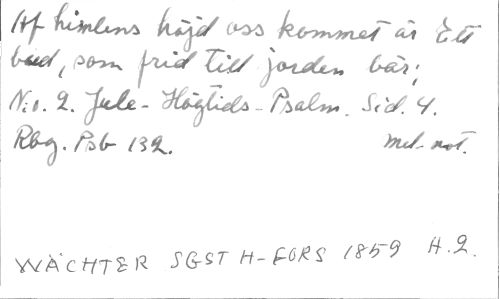 Af himlens höjd oss kommet är Ett
bud, som frid till jorden bär;
N:o. 2. Jule-Högtids-Psalm. Sid. 4.
Rbg. Psb 132. mel. not.
WÄCHTER SGST H-FORS 1859 H.2.